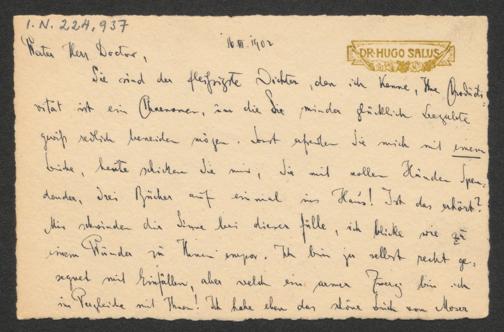 I.N. 224,937
16.VI.1902
DR. HUGO SALUS
Werter Herr Doctor,
Sie sind der fleißigste Dichter, den ich kenne, Ihre Productivität
ist ein Phaenomen, um die Sie minder glücklich Begabte
gewiß redlich beneiden mögen. Sonst erfreuten Sie mich mit einem
Buche, heute schicken Sie mir, Sie mit vollen Händen Spendender,
drei Bücher auf einmal ins Haus! Ist das erhört?
Mir schwinden die Sinne bei dieser Fülle, ich blicke wie zu
einem Wunder zu Ihnen empor. Ich bin ja selbst recht gesegnet
mit Einfällen, aber welch ein armer Zwerg bin ich
im Vergleiche mit Ihnen! Ich habe eben das schöne Buch vom Moser